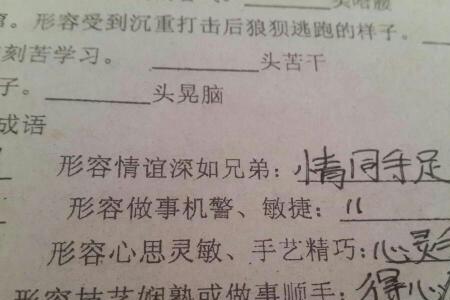 头
。形容受到沉重打击后狼狈逃跑的样子。
刻苦学习。 ________头苦干
子。________头晃脑
成语
形容情谊深如兄弟：情同手足
形容做事机警、敏捷：
形容心思灵敏、手艺精巧：心灵手
形容技艺娴熟或做事顺手：得心